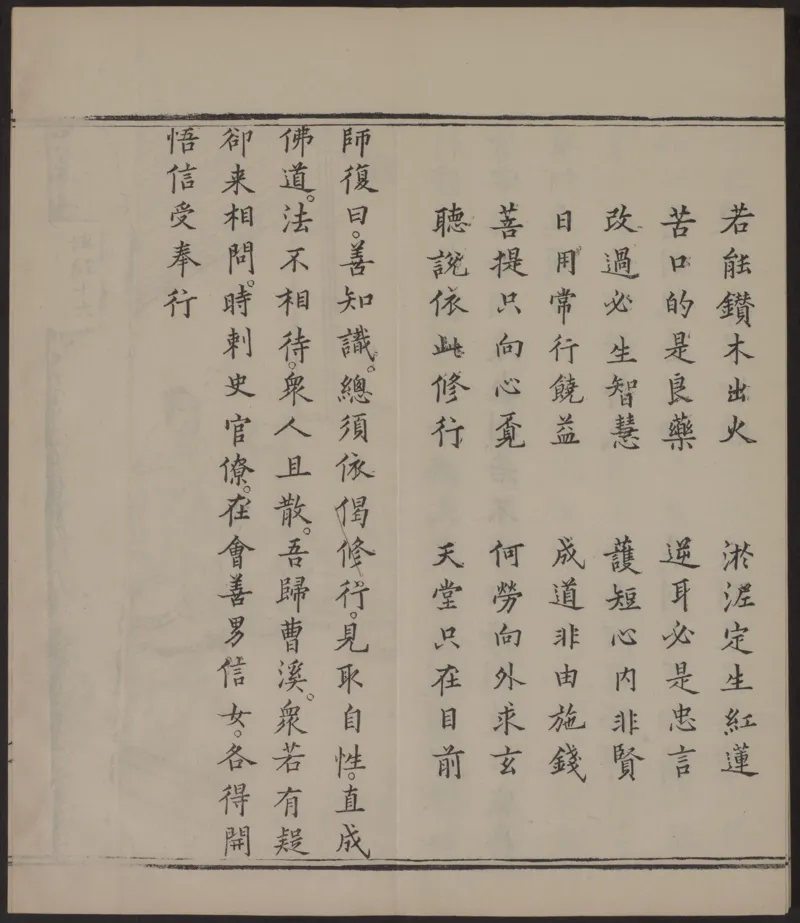 若能鑽木出火　淤泥定生紅蓮
苦口的是良藥　逆耳必是忠言
改過必生智慧　護短心内非賢
日用常行饒益　成道非由施錢
菩提只向心覔　何勞向外求玄
聽說依此修行　天堂只在目前
師復曰。善知識。總須依偈修行。見取自性。直成
佛道。法不相待。衆人且散。吾歸曹溪。衆若有疑
卻来相問。時刺史官僚。在會善男信女。各得開
悟信受奉行